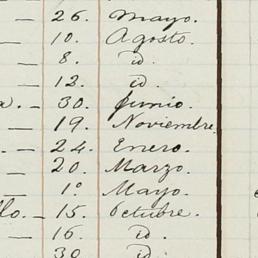 — 26. Mayo.
— 10. Agosto.
8. id.
— 12. id.
a. — 30. Junio.
— 19. Noviembre.
s. — 24. Enero.
— 20. Marzo.
— 1º Mayo.
llo. — 15. Octubre.
— 16. id.
— 30. id.